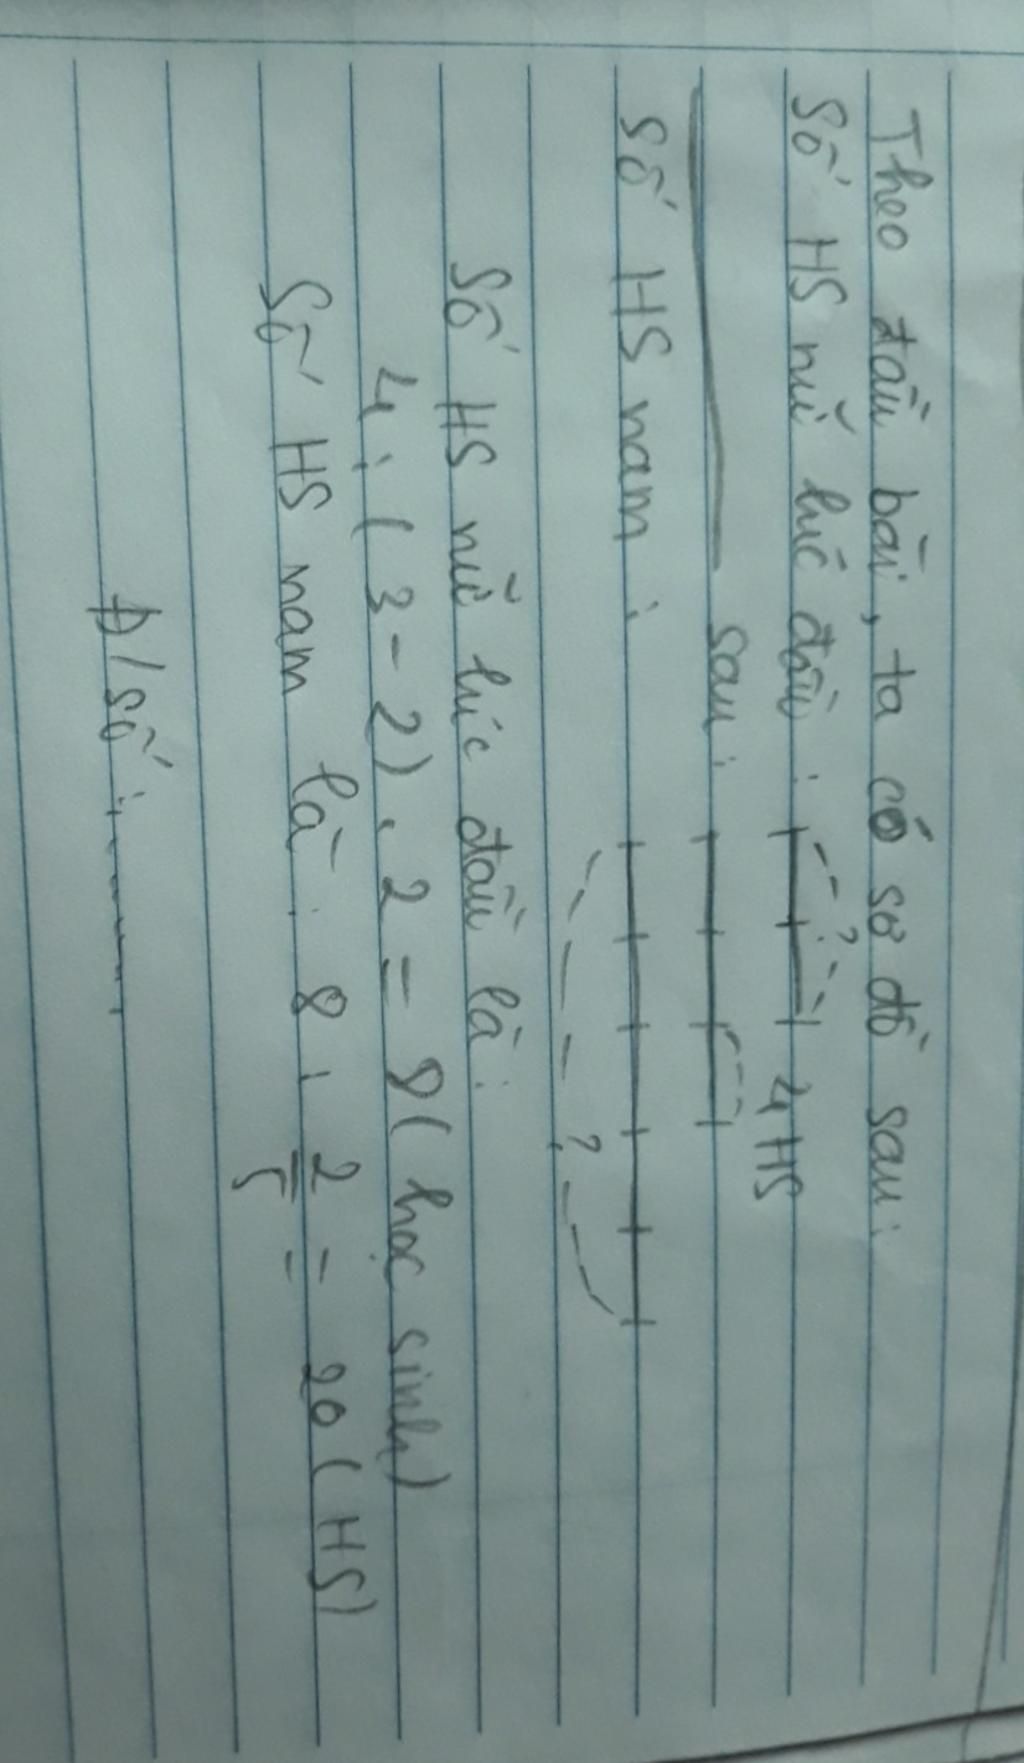 Theo đầu bài, ta có sơ đồ sau:
Số HS nữ lúc đầu : ? 4 HS
sau :
Số HS nam :
?
Số HS nữ lúc đầu là :
4 : (3 - 2) . 2 = 8 (học sinh)
Số HS nam là : 8 : 2/5 = 20 (HS)
Đ/số : ..........